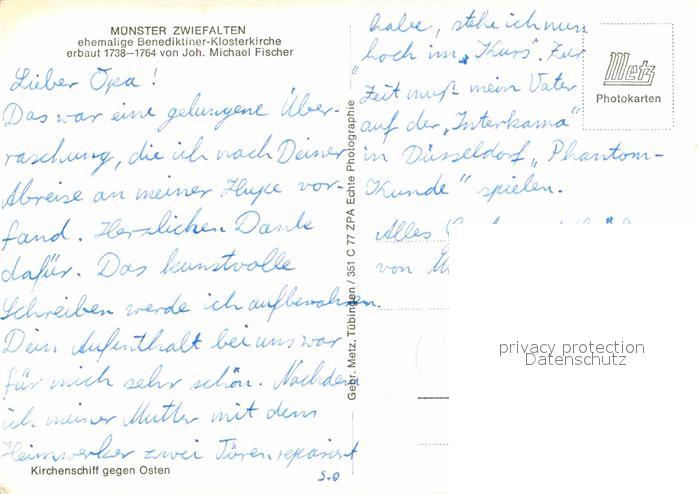 MÜNSTER ZWIEFALTEN
ehemalige Benediktiner-Klosterkirche
erbaut 1738—1764 von Joh. Michael Fischer
Lieber Opa!
Das war eine gelungene Über-
raschung, die ich nach Deiner
Abreise an meiner Hupe vor-
fand. Herzlichen Dank
dafür. Das kunstvolle
Schreiben werde ich aufbewahren.
Dein Aufenthalt bei uns war
für mich sehr schön. Nachdem
ich meiner Mutter mit dem
Heimwerker zwei Türen repariert
Kirchenschiff gegen Osten
Gebr. Metz, Tübingen / 351 C 77 ZPA Echte Photographie
habe, stehe ich nun
hoch im „Kurs". Zur
Zeit muß mein Vater
auf der „Interkama"
in Düsseldorf „Phantom-
Kunde" spielen.
Alles
von
Metz
Photokarten
privacy protection
Datenschutz